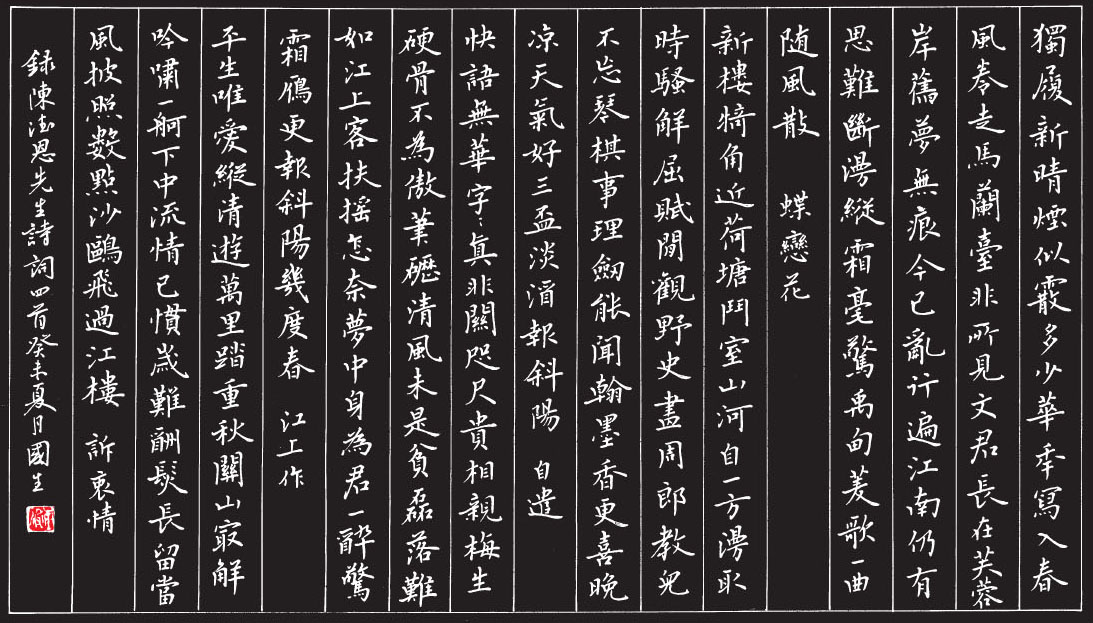 獨履新晴煙似霰多少華年寫入春
風卷走馬蘭臺非所見文君長在芙蓉
岸舊夢無痕今已亂行遍江南仍有
思難斷漫縱霜毫驚禹甸菱歌一曲
随風散 蝶戀花
新樓犄角近荷塘鬥室山河自一方漫取
時騷解屈賦閒觀野史盡周郎教兒
不忘琴棋事理劒能聞翰墨香更喜晚
凉天氣好三盃淡酒報斜陽 自遣
快語無華字〻真非關咫尺貴相親梅生
硬骨不為傲筆礎清風未是貧磊落難
如江上客扶搖怎奈夢中身為君一醉驚
霜鴈更報斜陽幾度春 江上作
平生唯愛縱清遊萬里踏重秋關山寂解
吟嘯一舸下中流情已慣歲難酬髮長留當
風披照数點沙鷗飛過江樓 訴衷情
録陳德恩先生詩詞四首癸未夏月國生